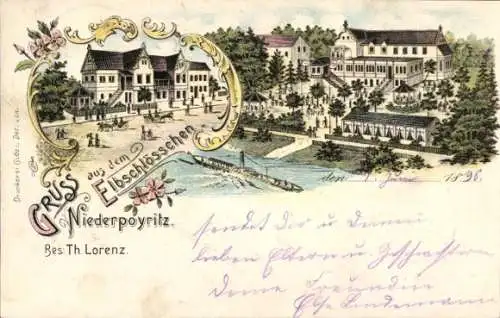 Gruss
aus dem
Elbschlösschen
Niederpoyritz.
Bes: Th. Lorenz.
den 1. Juni 1898
sendet Dir u Deinen
lieben Eltern u. Geschwistern
Deine Freundin
Else Lindemann